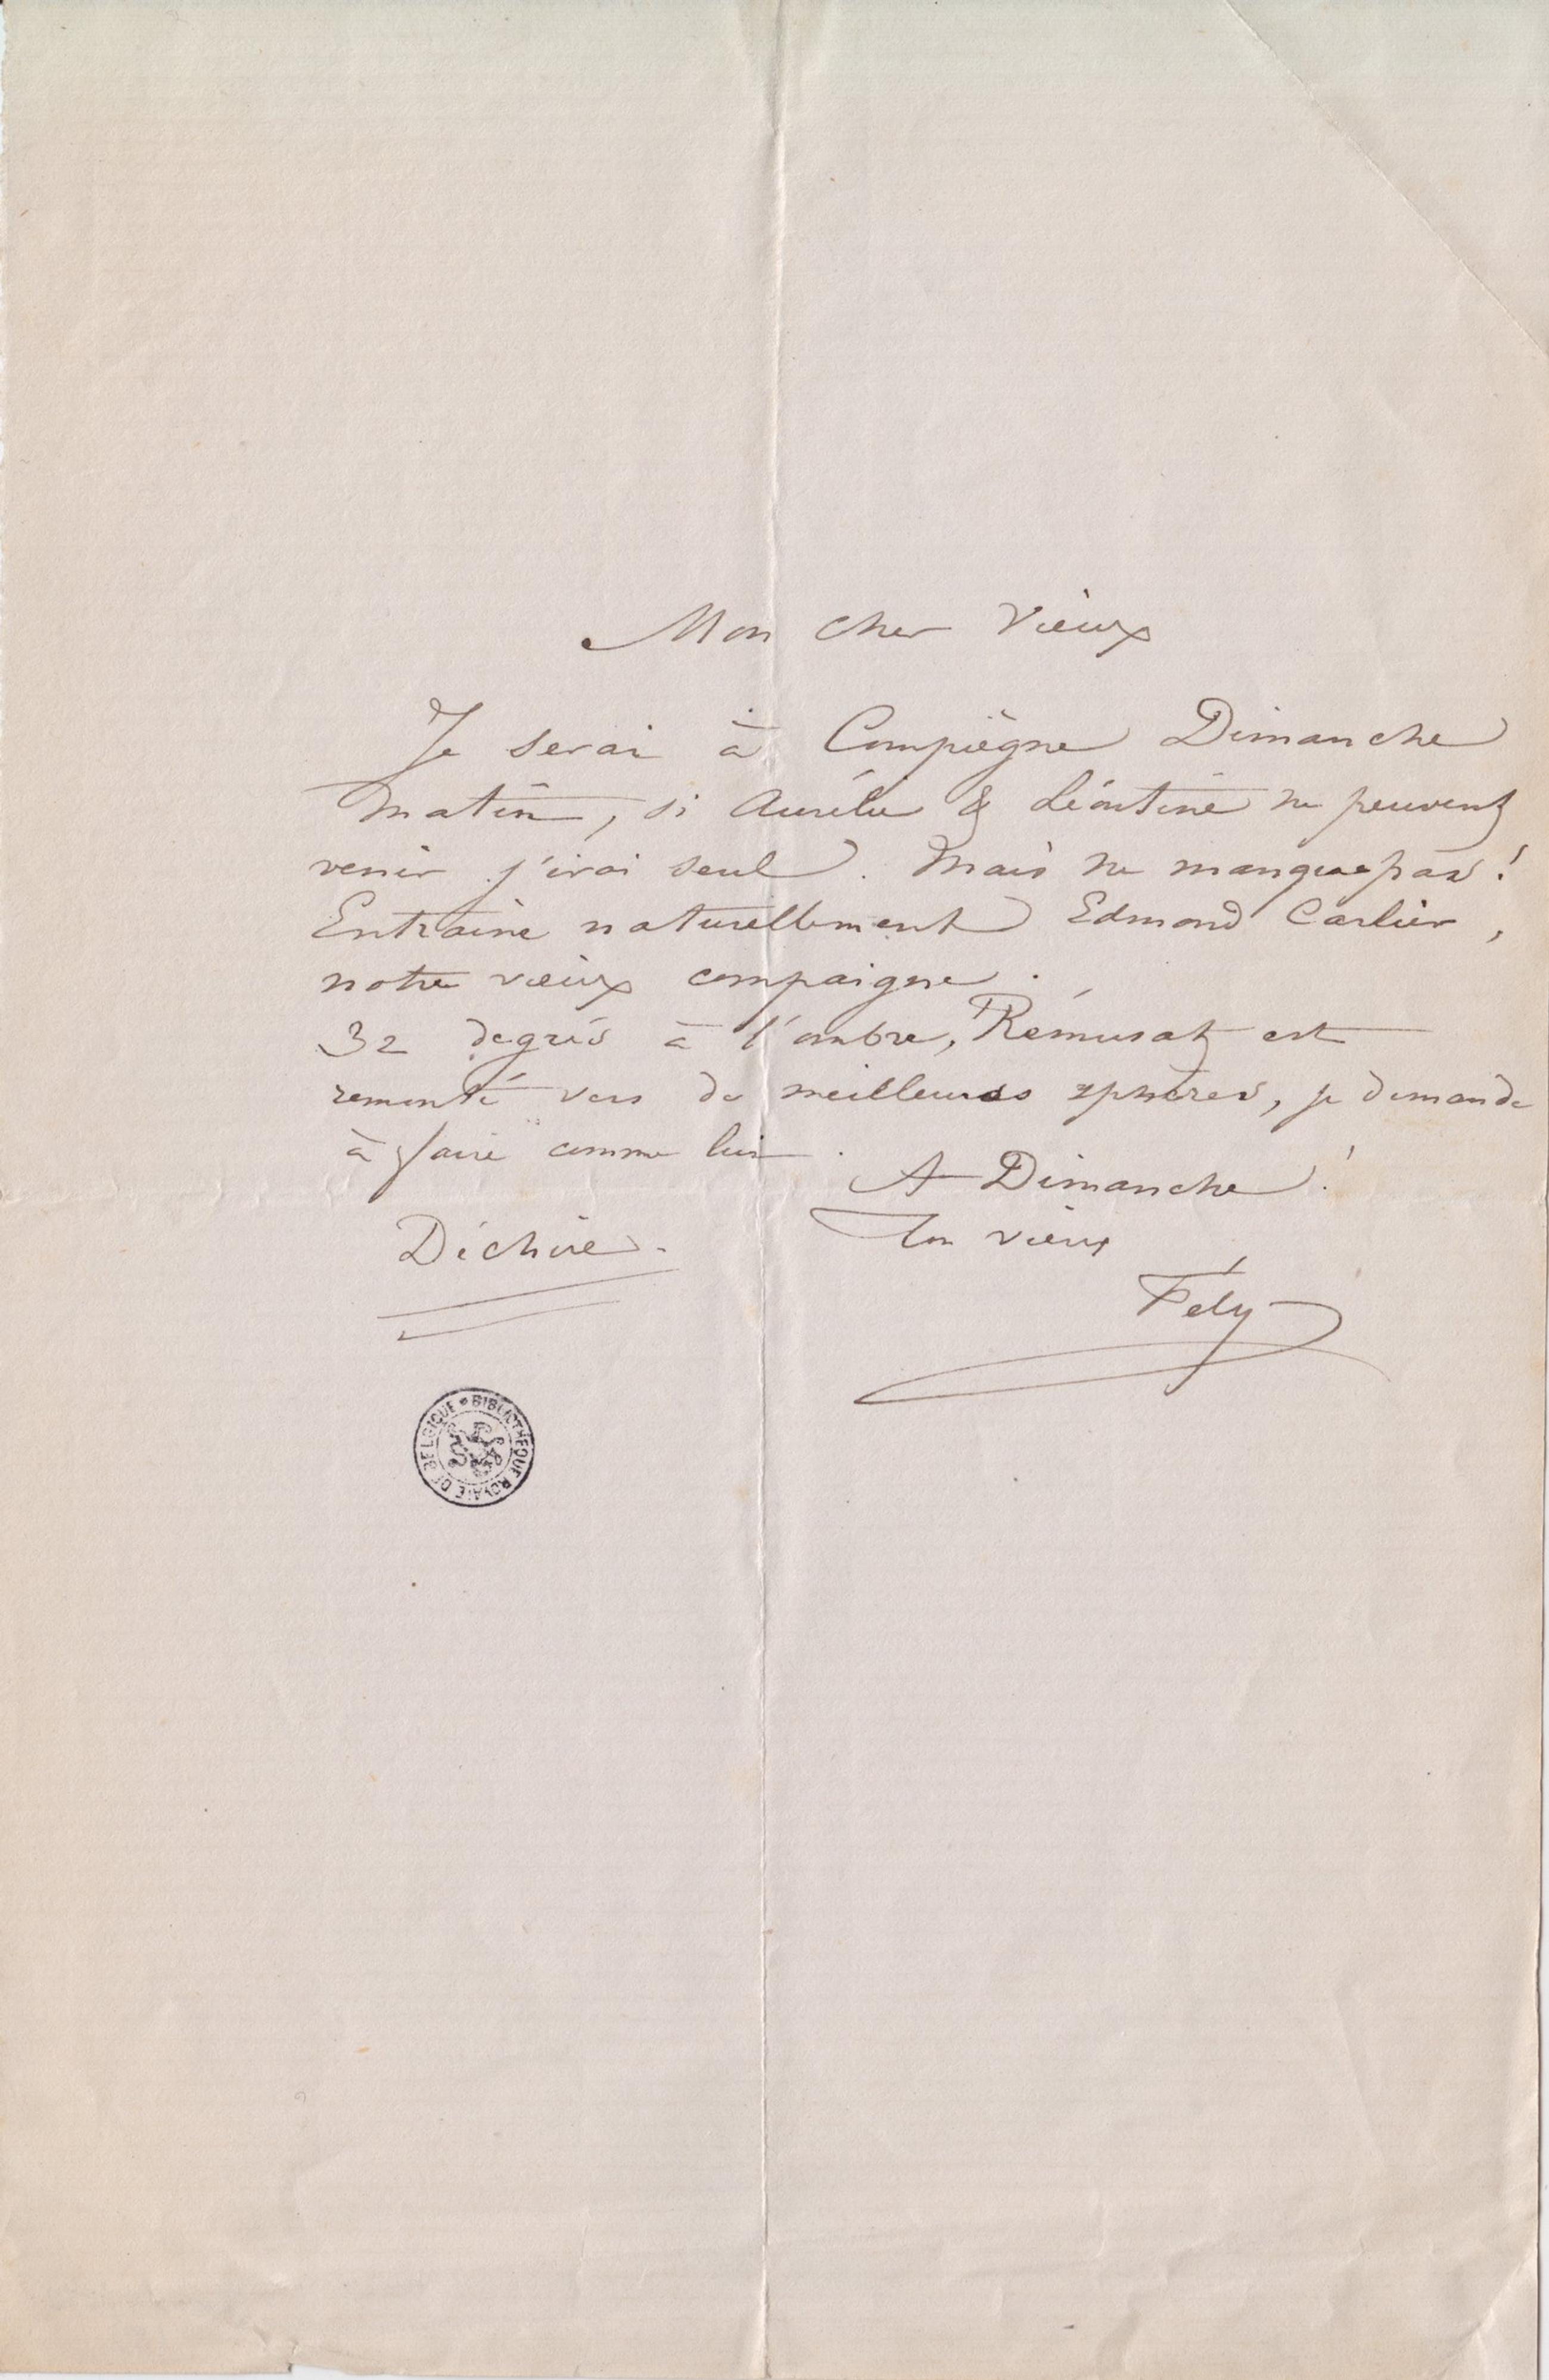 Mon cher Vieux
Je serai à Compiègne Dimanche
matin, si Aurélie & Léontine ne peuvent
venir j'irai seul. Mais ne manque pas!
Entraine naturellement Edmond Carlier,
notre vieux compaigne.
32 degrés à l'ombre, Rémusat est
remonté vers de meilleures sphères, je demande
à faire comme lui.
A Dimanche!
Ton vieux
Fély
Déchire.
BIBLIOTHEQUE ROYALE DE BELGIQUE